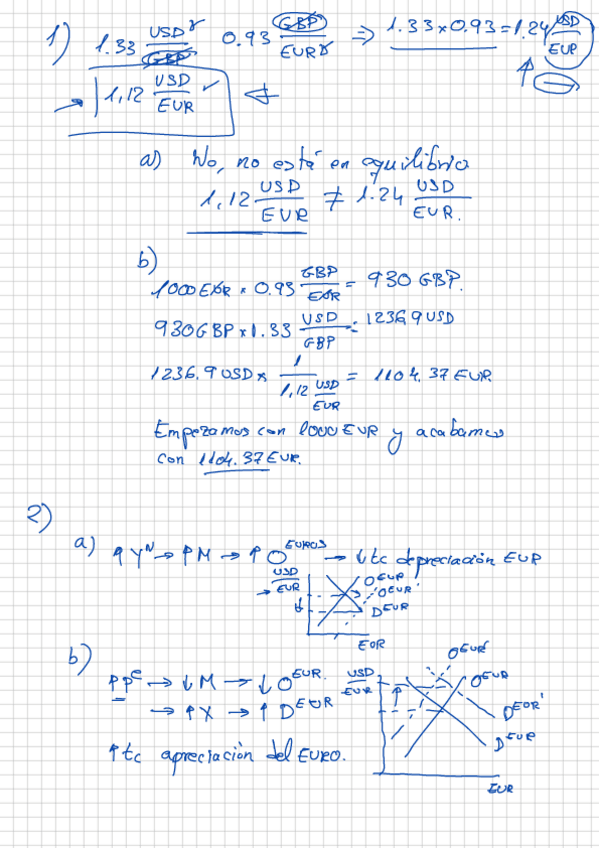 1) 1.33 USD/GBP 0.93 GBP/EUR ⇒ 1.33 x 0.93 = 1.24 USD/EUR
→ 1,12 USD/EUR ✓
a) No, no está en equilibrio
1,12 USD/EUR ≠ 1.24 USD/EUR.
b)
1000 EUR x 0.93 GBP/EUR = 930 GBP.
930 GBP x 1.33 USD/GBP = 1236,9 USD
1236.9 USD x 1/1,12 USD/EUR = 1104.37 EUR
Empezamos con 1000 EUR y acabamos
con 1104.37 EUR.
2)
a) ↑ Y^N → ↑ M → ↑ O^EUROS → ↓ tc depreciación EUR
USD/EUR
O^EUR
O^EUR'
D^EUR
EUR
b)
→ ↓ M → ↓ O^EUR.
→ ↑ X → ↑ D^EUR
↑ tc apreciación del EURO.
USD/EUR
O^EUR'
O^EUR
D^EUR'
D^EUR
EUR